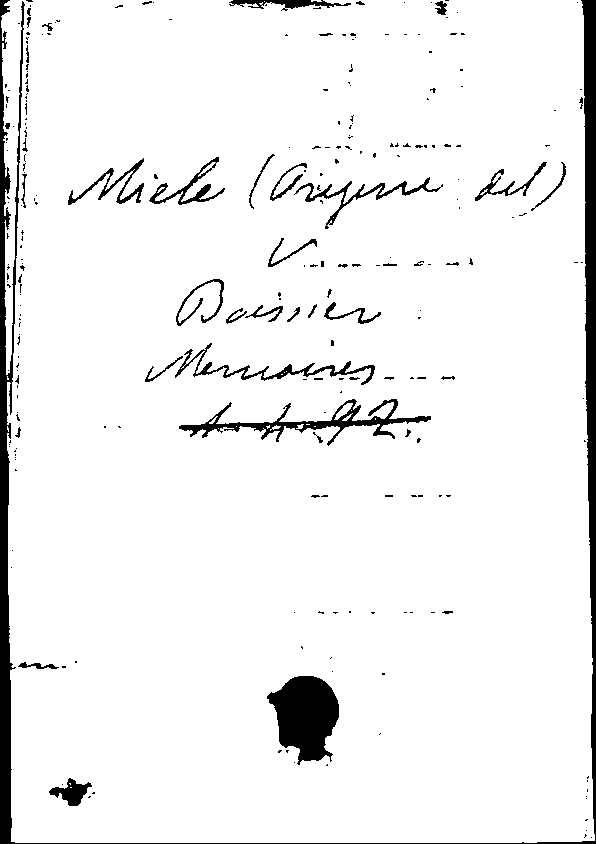 Miele (Origine del)
V
Boissier
Memoires
A. 4. 92.